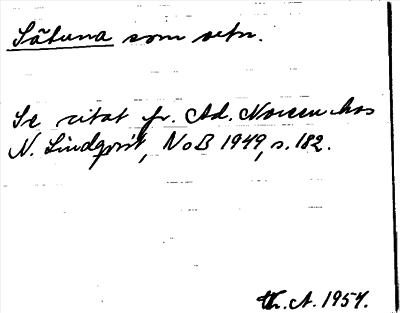 Såtuna som ortn.
Se citat fr. Ad. Noreen hos
N. Lindqvist, NoB 1949, s. 182.
Th. A. 1954.